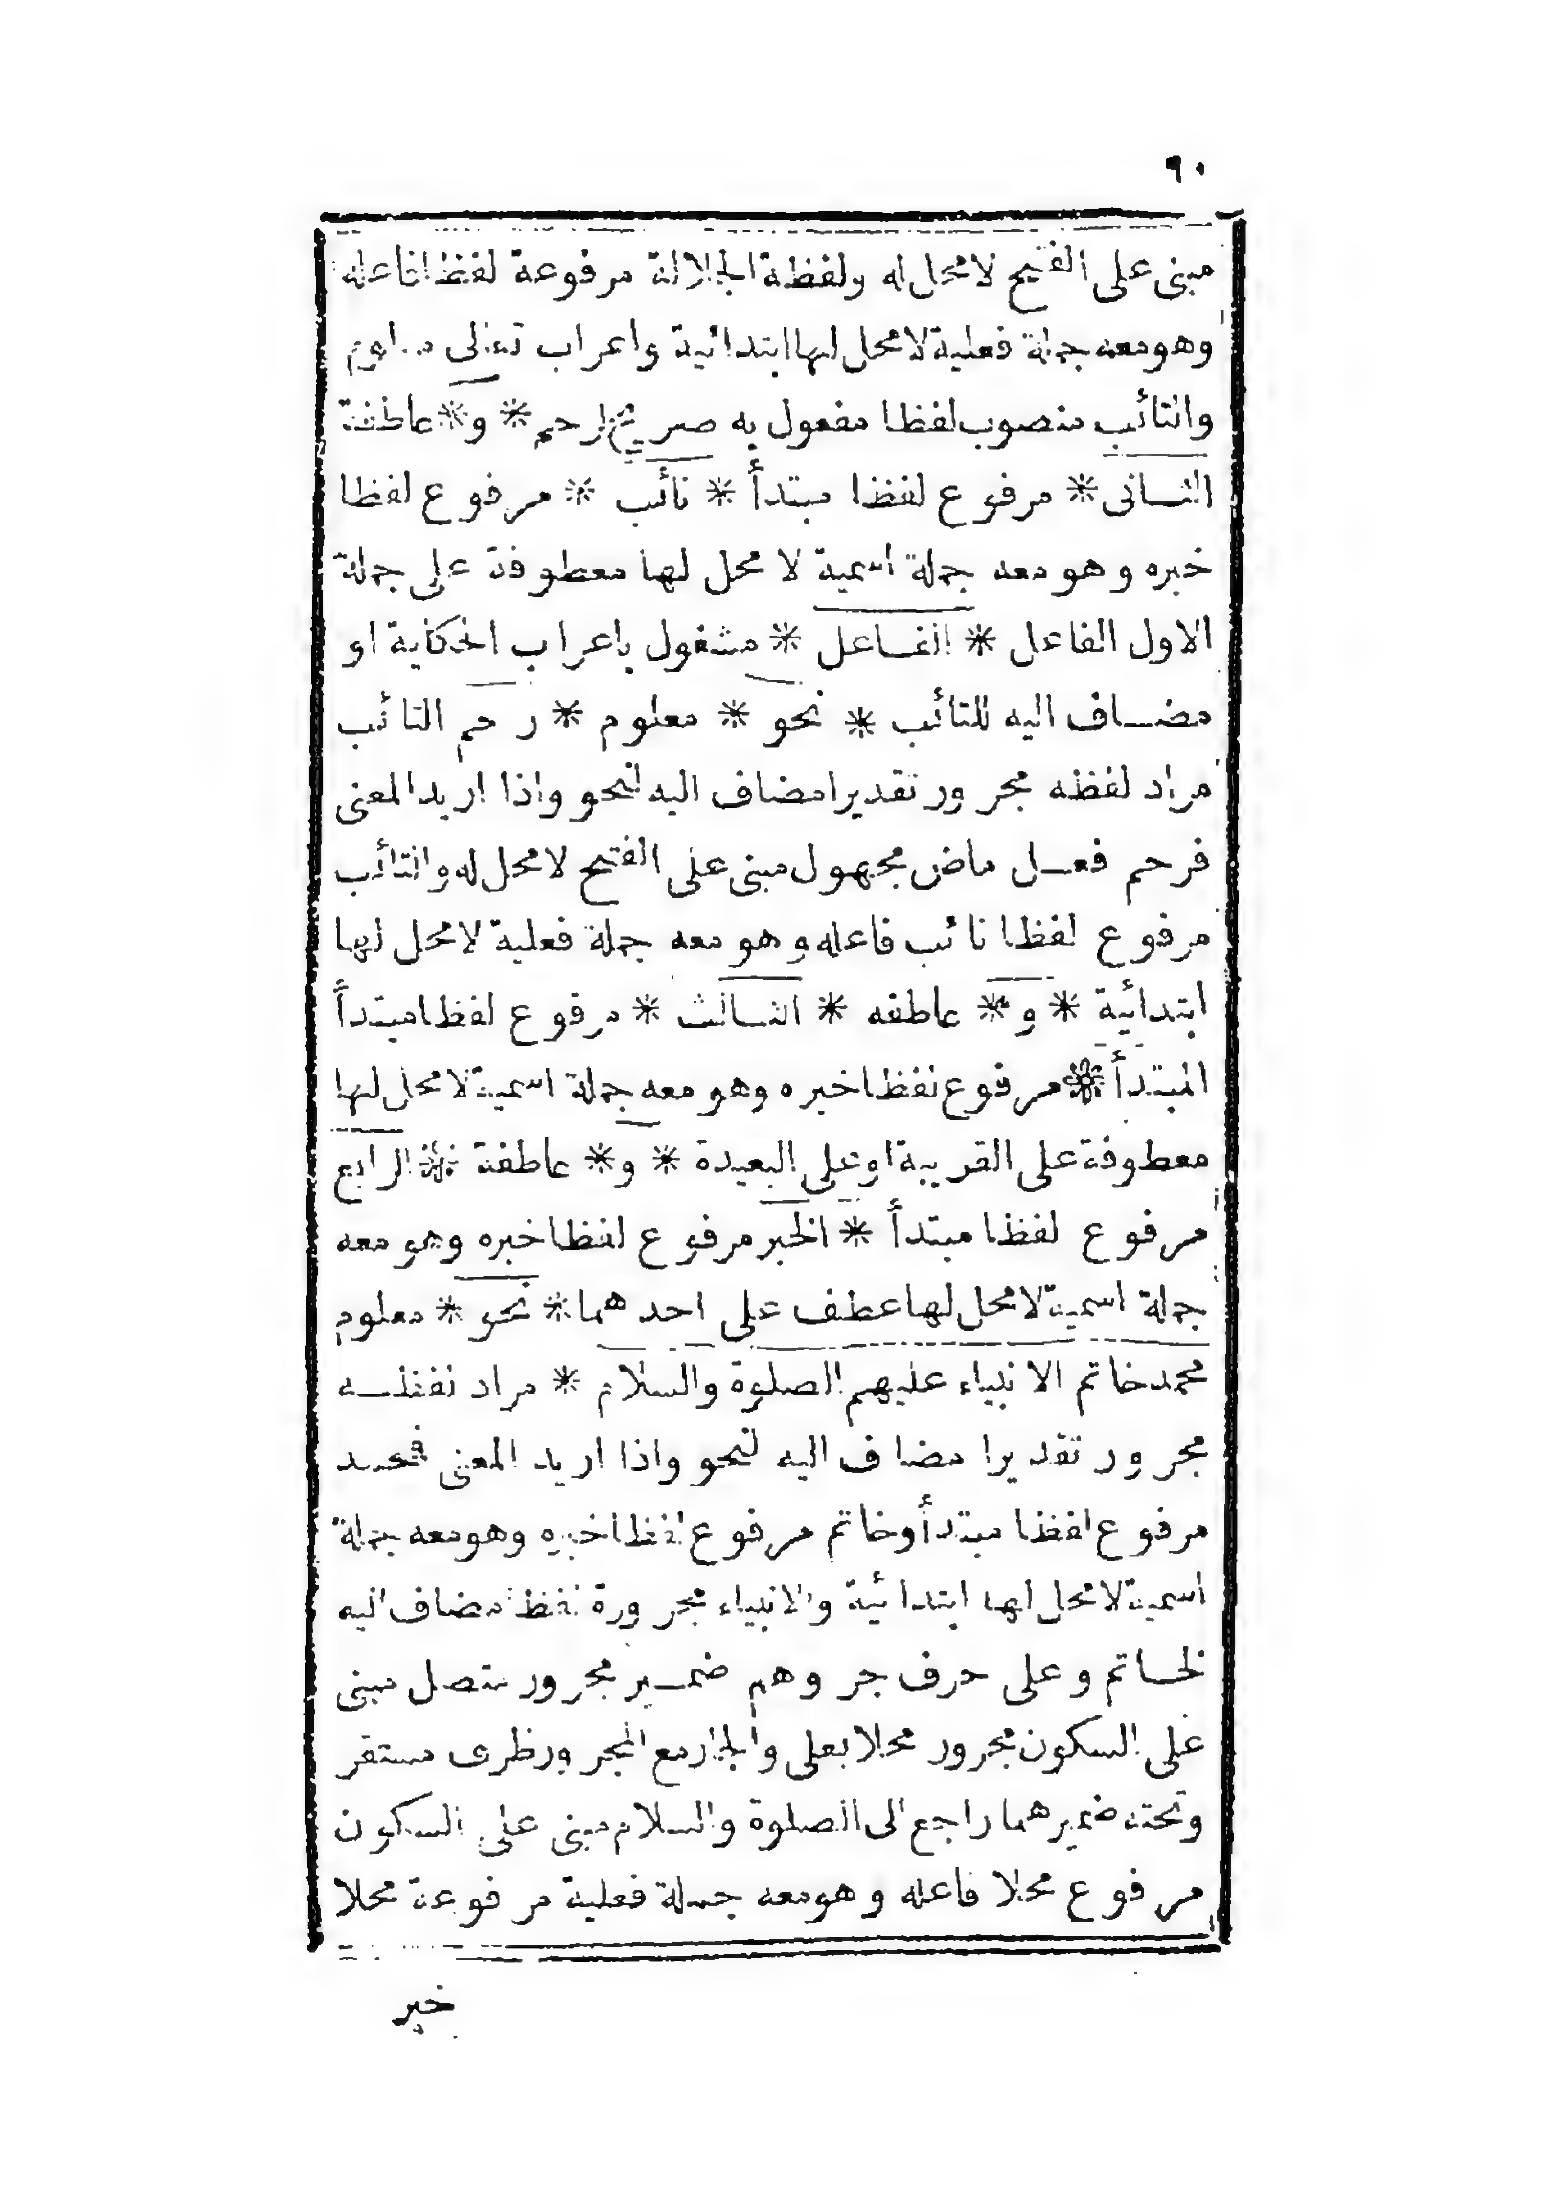 ٩٠
مبنى على الفتح لا محل له ولفظة الجلالة مرفوعة لفظا فاعله
وهو معه جملة فعلية لا محل لها ابتدائية واعراب تعالى معلوم
والتائب منصوب لفظا مفعول به صريح لرحم * و * عاطفة
الثانى * مرفوع لفظا مبتدأ * نائب * مرفوع لفظا
خبره وهو معه جملة اسمية لا محل لها معطوفة على جملة
الاول الفاعل * الفاعل * مشغول باعراب الحكاية او
مضاف اليه للتائب * نحو * معلوم * رحم التائب
مراد لفظه مجرور تقديرا مضاف اليه لنحو واذا اريد المعنى
فرحم فعل ماض مجهول مبنى على الفتح لا محل له والتائب
مرفوع لفظا نائب فاعله وهو معه جملة فعلية لا محل لها
ابتدائية * و * عاطفه * الثالث * مرفوع لفظا مبتدأ
المبتدأ * مرفوع لفظا خبره وهو معه جملة اسمية لا محل لها
معطوفة على القريبة او على البعيدة * و * عاطفة * الرابع
مرفوع لفظا مبتدأ * الخبر مرفوع لفظا خبره وهو معه
جملة اسمية لا محل لها عطف على احدهما * نحو * معلوم
محمد خاتم الانبياء عليهم الصلوة والسلام * مراد لفظه
مجرور تقديرا مضاف اليه لنحو واذا اريد المعنى فمحمد
مرفوع لفظا مبتدأ وخاتم مرفوع لفظا خبره وهو معه جملة
اسمية لا محل لها ابتدائية والانبياء مجرورة لفظا مضاف اليه
لخاتم وعلى حرف جر وهم ضمير مجرور متصل مبنى
على السكون مجرور محلا بعلى والجار مع المجرور ظرف مستقر
وتحته ضمير هما راجع الى الصلوة والسلام مبنى على السكون
مرفوع محلا فاعله وهو معه جملة فعلية مرفوعة محلا
خبر